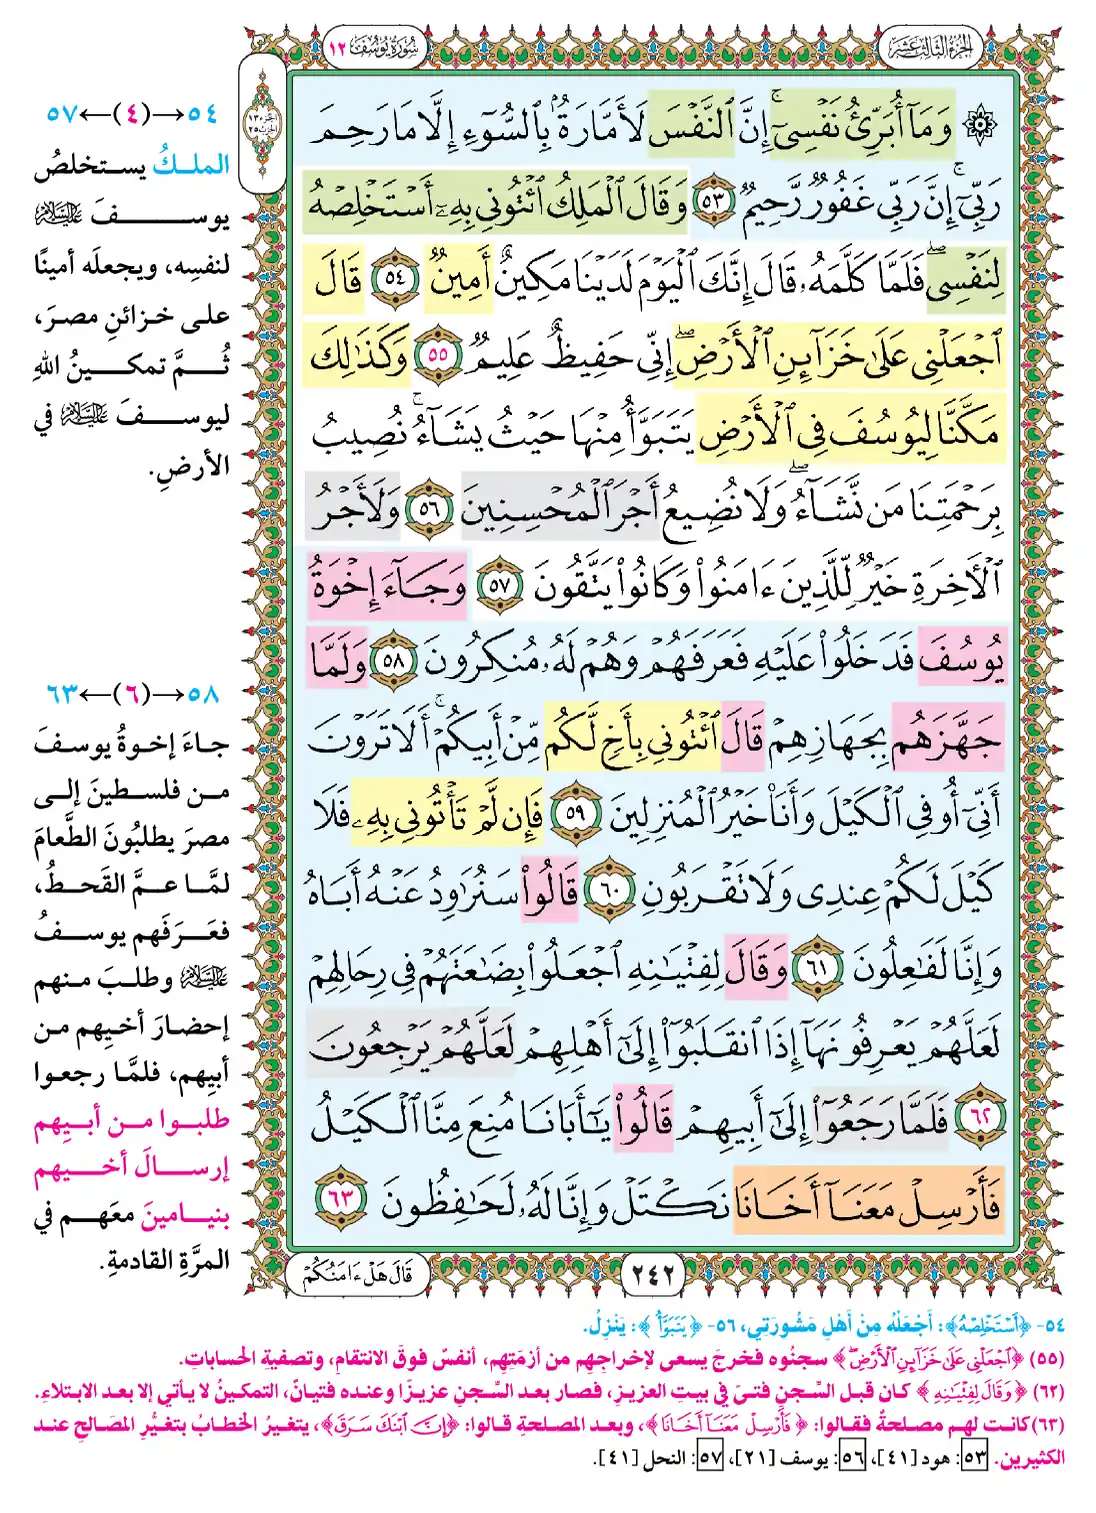 الجزء الثالث عشر
سورة يوسف ١٢
۞ وَمَآ أُبَرِّئُ نَفْسِىٓ ۚ إِنَّ ٱلنَّفْسَ لَأَمَّارَةٌۢ بِٱلسُّوٓءِ إِلَّا مَا رَحِمَ
رَبِّىٓ ۚ إِنَّ رَبِّى غَفُورٌ رَّحِيمٌ ٥٣ وَقَالَ ٱلْمَلِكُ ٱئْتُونِى بِهِۦٓ أَسْتَخْلِصْهُ
لِنَفْسِى ۖ فَلَمَّا كَلَّمَهُۥ قَالَ إِنَّكَ ٱلْيَوْمَ لَدَيْنَا مَكِينٌ أَمِينٌ ٥٤ قَالَ
ٱجْعَلْنِى عَلَىٰ خَزَآئِنِ ٱلْأَرْضِ ۖ إِنِّى حَفِيظٌ عَلِيمٌ ٥٥ وَكَذَٰلِكَ
مَكَّنَّا لِيُوسُفَ فِى ٱلْأَرْضِ يَتَبَوَّأُ مِنْهَا حَيْثُ يَشَآءُ ۚ نُصِيبُ
بِرَحْمَتِنَا مَن نَّشَآءُ ۖ وَلَا نُضِيعُ أَجْرَ ٱلْمُحْسِنِينَ ٥٦ وَلَأَجْرُ
ٱلْـَٔاخِرَةِ خَيْرٌ لِّلَّذِينَ ءَامَنُوا۟ وَكَانُوا۟ يَتَّقُونَ ٥٧ وَجَآءَ إِخْوَةُ
يُوسُفَ فَدَخَلُوا۟ عَلَيْهِ فَعَرَفَهُمْ وَهُمْ لَهُۥ مُنكِرُونَ ٥٨ وَلَمَّا
جَهَّزَهُم بِجَهَازِهِمْ قَالَ ٱئْتُونِى بِأَخٍ لَّكُم مِّنْ أَبِيكُمْ ۚ أَلَا تَرَوْنَ
أَنِّىٓ أُوفِى ٱلْكَيْلَ وَأَنَا۠ خَيْرُ ٱلْمُنزِلِينَ ٥٩ فَإِن لَّمْ تَأْتُونِى بِهِۦ فَلَا
كَيْلَ لَكُمْ عِندِى وَلَا تَقْرَبُونِ ٦٠ قَالُوا۟ سَنُرَٰوِدُ عَنْهُ أَبَاهُ
وَإِنَّا لَفَٰعِلُونَ ٦١ وَقَالَ لِفِتْيَٰنِهِ ٱجْعَلُوا۟ بِضَٰعَتَهُمْ فِى رِحَالِهِمْ
لَعَلَّهُمْ يَعْرِفُونَهَآ إِذَا ٱنقَلَبُوٓا۟ إِلَىٰٓ أَهْلِهِمْ لَعَلَّهُمْ يَرْجِعُونَ
٦٢ فَلَمَّا رَجَعُوٓا۟ إِلَىٰٓ أَبِيهِمْ قَالُوا۟ يَٰٓأَبَانَا مُنِعَ مِنَّا ٱلْكَيْلُ
فَأَرْسِلْ مَعَنَآ أَخَانَا نَكْتَلْ وَإِنَّا لَهُۥ لَحَٰفِظُونَ ٦٣
٢٤٢
قَالَ هَلْ ءَامَنُكُمْ
٥٤→(٤)←٥٧
الملكُ يستخلصُ
يوسفَ عليه السلام
لنفسِه، ويجعلَه أمينًا
على خزائنِ مصرَ،
ثُمَّ تمكينُ اللهِ
ليوسفَ عليه السلام في
الأرضِ.
٥٨→(٦)←٦٣
جاءَ إخوةُ يوسفَ
من فلسطينَ إلى
مصرَ يطلبُونَ الطَّعامَ
لمَّا عمَّ القَحطُ،
فعَرَفَهم يوسفُ
عليه السلام وطلبَ منهم
إحضارَ أخيهم من
أبيهم، فلمَّا رجعوا
طلبوا من أبيهِم
إرسالَ أخيهم
بنيامينَ معَهم في
المرَّةِ القادمةِ.
٥٤- ﴿أَسْتَخْلِصْهُ﴾: أَجْعَلْهُ مِنْ أَهْلِ مَشُورَتِي، ٥٦- ﴿يَتَبَوَّأُ﴾: يَنْزِلُ.
(٥٥) ﴿ٱجْعَلْنِى عَلَىٰ خَزَآئِنِ ٱلْأَرْضِ ۖ﴾ سجنُوه فخرجَ يسعى لإخراجِهم من أزمَتِهم، أنفسٌ فوقَ الانتقامِ، وتصفيةِ الحساباتِ.
(٦٢) ﴿وَقَالَ لِفِتْيَٰنِهِ﴾ كان قبل السِّجنِ فتىً في بيتِ العزيزِ، فصار بعد السِّجنِ عزيزًا وعنده فتيانٌ، التمكينُ لا يأتي إلا بعد الابتلاءِ.
(٦٣) كانت لهم مصلحةٌ فقالوا: ﴿فَأَرْسِلْ مَعَنَآ أَخَانَا﴾، وبعد المصلحةِ قالوا: ﴿إِنَّ ٱبْنَكَ سَرَقَ﴾، يتغيرُ الخطابُ بتغيُّرِ المصَالحِ عند
الكثيرين. ٥٣: هود [٤١]، ٥٦: يوسف [٢١]، ٥٧: النحل [٤١].